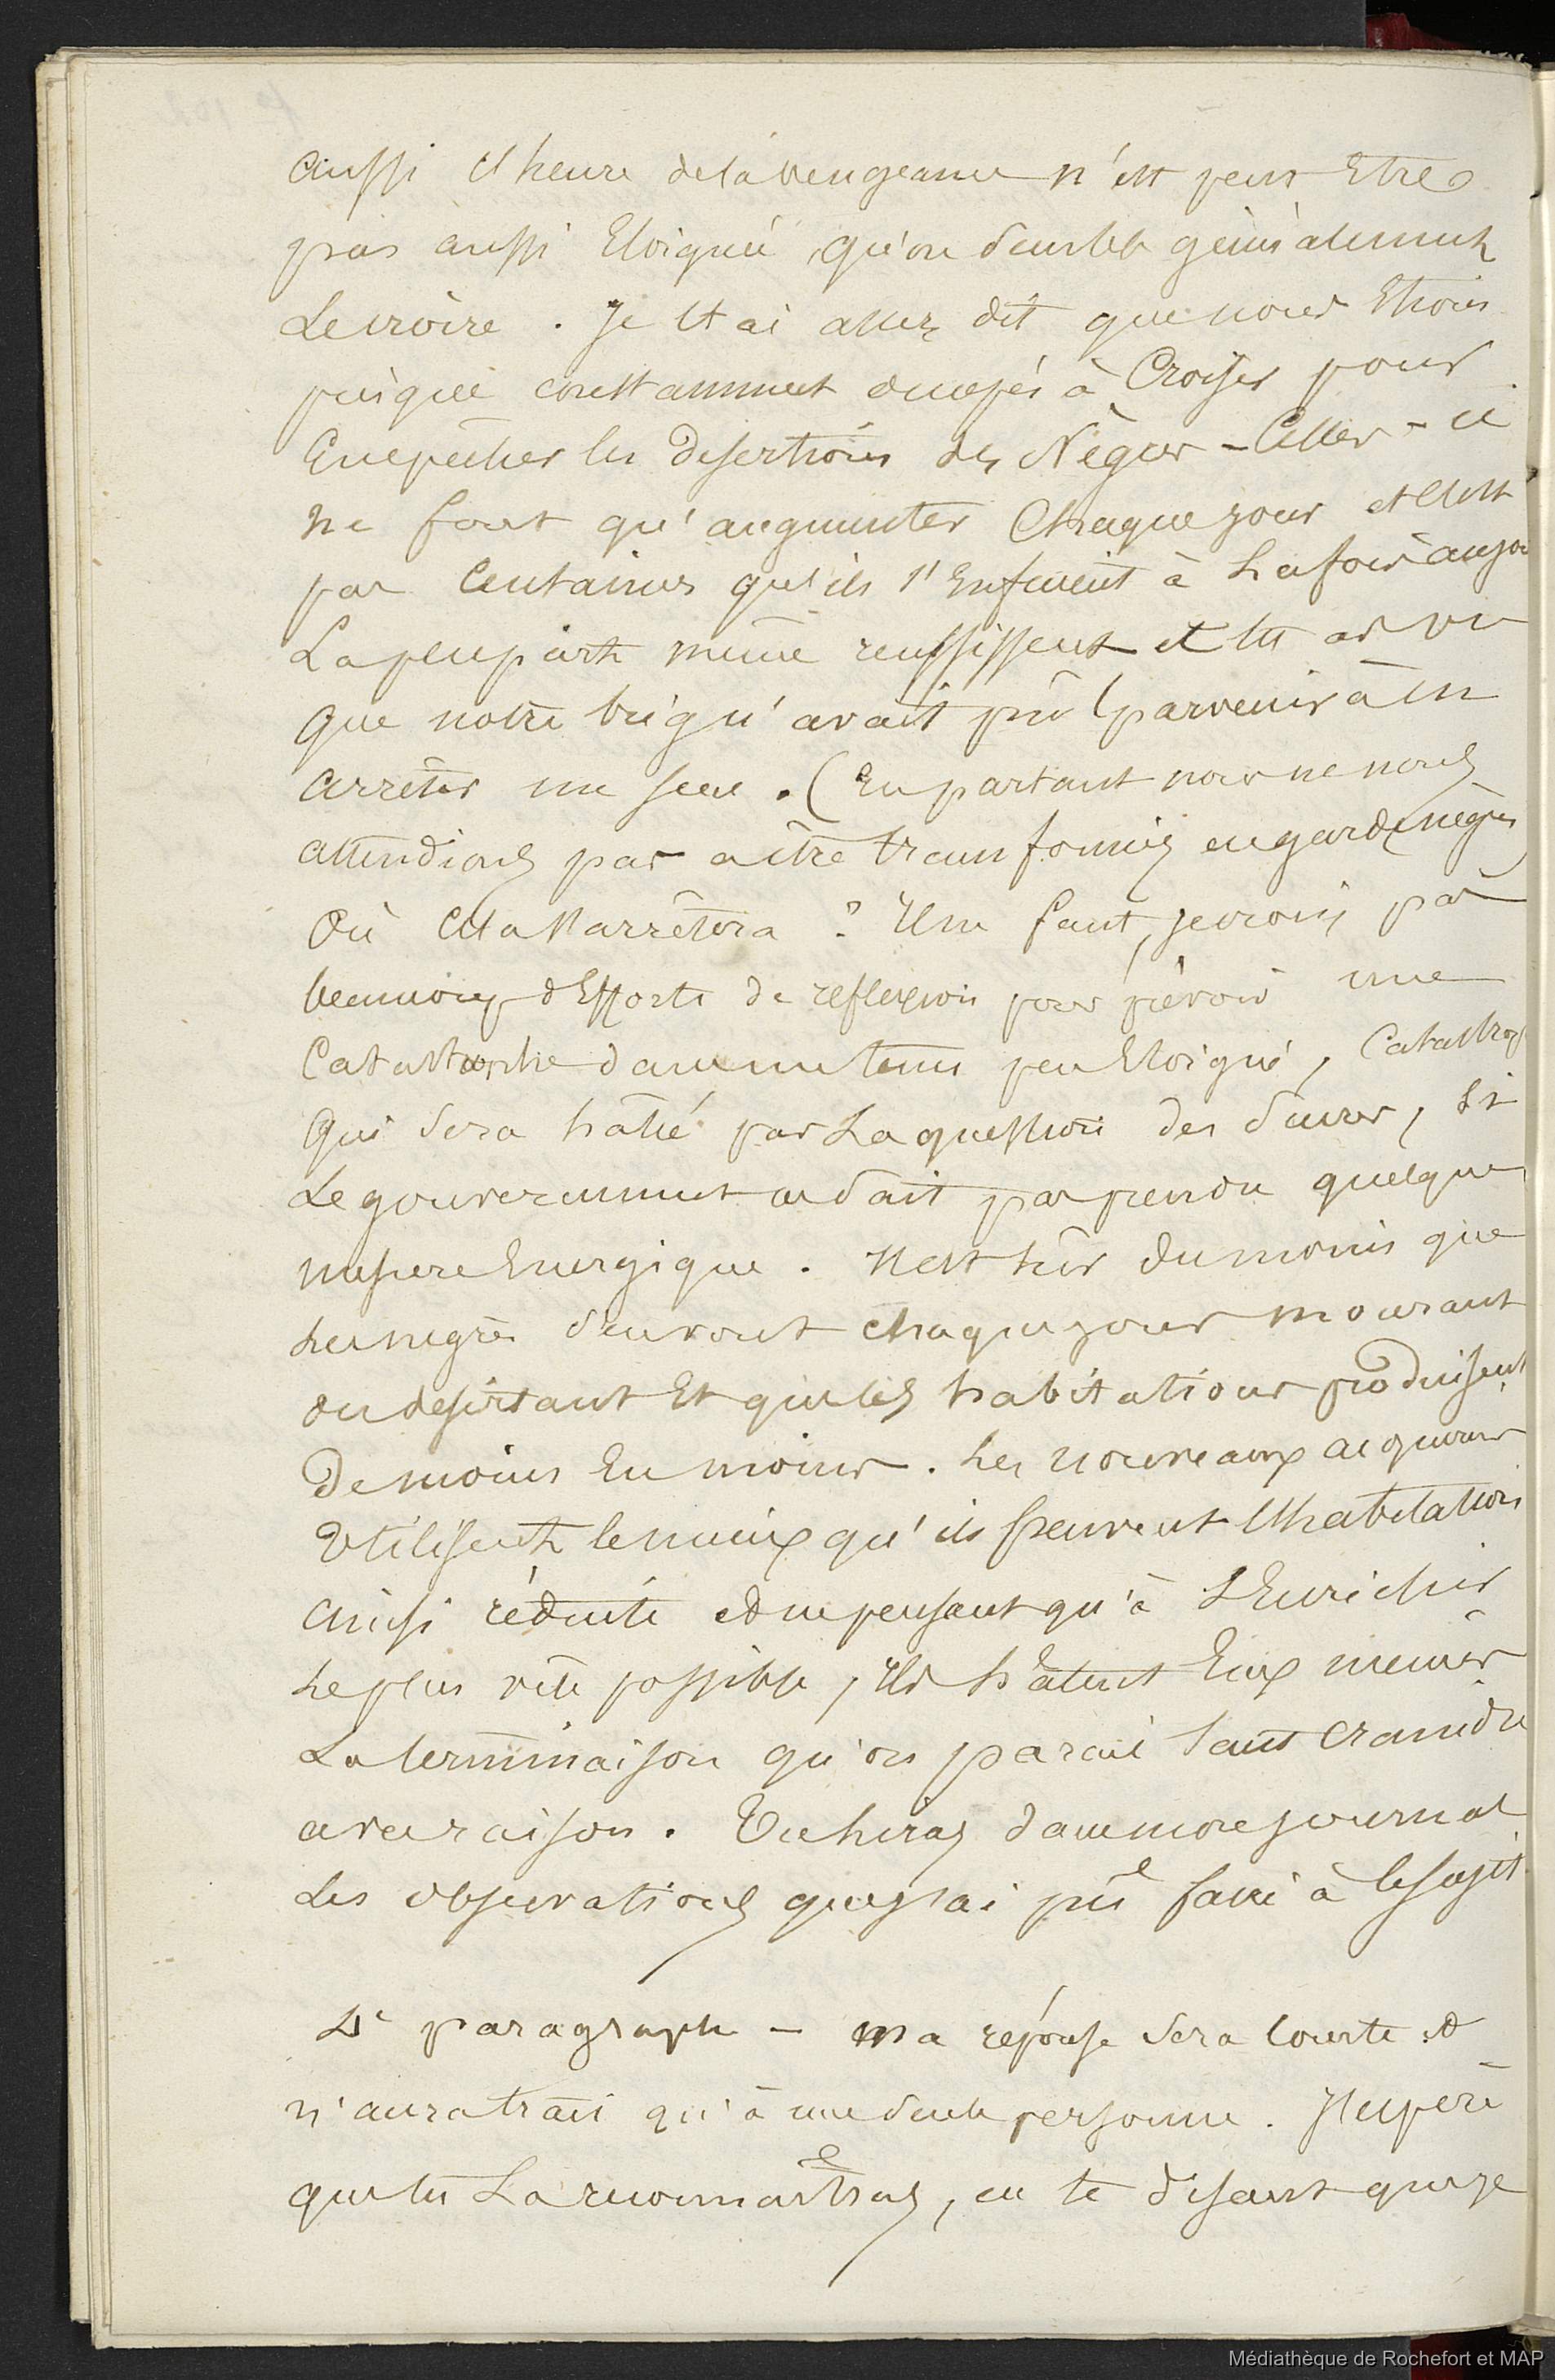 aussi l'heure de la vengeance n'est peut Etre
pas aussi Eloignée, qu'on semble généralement
Le croire. Je t'ai assez dit que nous Etions
presque constamment occupés à Croiser pour
Empêcher les Desertions des Nègres - Celles-ci
ne font qu'augmenter Chaque jour et c'est
par Centaines qu'ils s'Enfuient à La fois
La plupart même reussissent et tu as vu
que notre brig n'avait pû parvenir à en
arrêter un seul. (En partant nous ne nous
attendions pas a être transformés en garde nègres)
Où Cela s'arrêtera ? Il ne faut, je crois, pas
beaucoup d'Efforts de reflexion pour prévoir une
Catastrophe dans un tems peu Eloigné, Catastrop
Qui sera hatée par La question des sucres, Si
Le gouvernement ne sait pas prendre quelque
mesure Energique. Il est sûr du moins que
Les negres s'en vont chaque jour mourant
ou desertant Et que les habitations produisent
De moins En moins. Les nouveaux acquereurs
Utilisent le mieux qu'ils peuvent l'habitation
ainsi réduite et ne pensant qu'à S'Enrichir
Le plus vite possible, Ils hâtent Eux mêmes
La terminaison qu'on parait tant craindre
avec raison. Tu liras dans mon journal
Les observations que j'ai pû faire à ce sujet.
4e paragraphe - ma réponse sera courte et
n'aura trait qu'à une seule personne. J'espère
que tu La reconnaitras, en te disant que je
Médiathèque de Rochefort et MAP